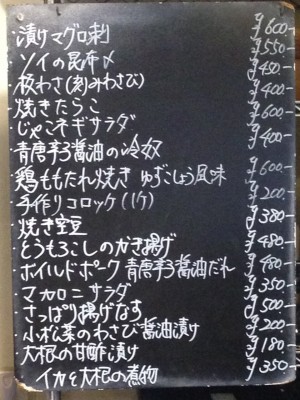 ・漬けマグロ刺 ¥600-
・ソイの昆布〆 ¥550-
・板わさ(刻みわさび) ¥450-
・焼きたらこ ¥400-
・じゃこネギサラダ ¥600-
・青唐辛子醤油の冷奴 ¥400-
・鶏ももたれ焼き ゆずこしょう風味 ¥600-
・手作りコロッケ(1ケ) ¥200-
・焼き空豆 ¥380-
・とうもろこしのかき揚げ ¥480-
・ボイルドポーク 青唐辛子醤油だれ ¥480-
・マカロニサラダ ¥350-
・さっぱり揚げなす ¥500-
・小松菜のわさび醤油漬け ¥200-
・大根の甘酢漬け ¥180-
・イカと大根の煮物 ¥350-